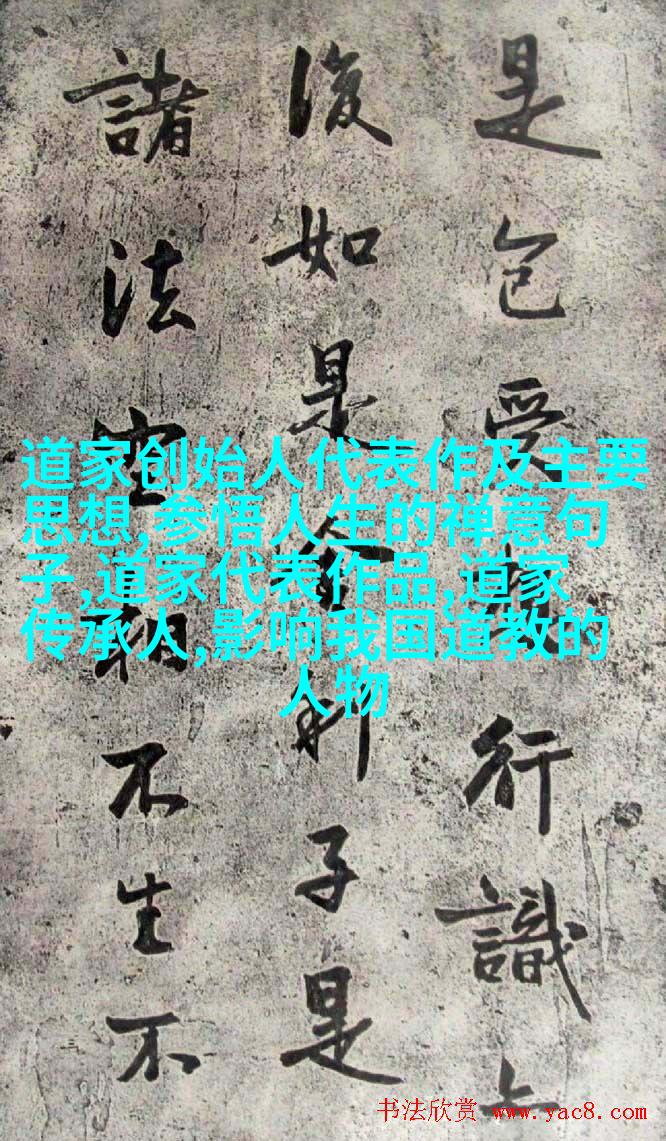 是色受想行識
復如是舍利子是
諸法空相不生不
道家创始人代表作及主要
思想,参悟人生的禅意句
子,道家代表作品,道家
传承人,影响我国道教的
人物
书法欣赏 www.yac8.com